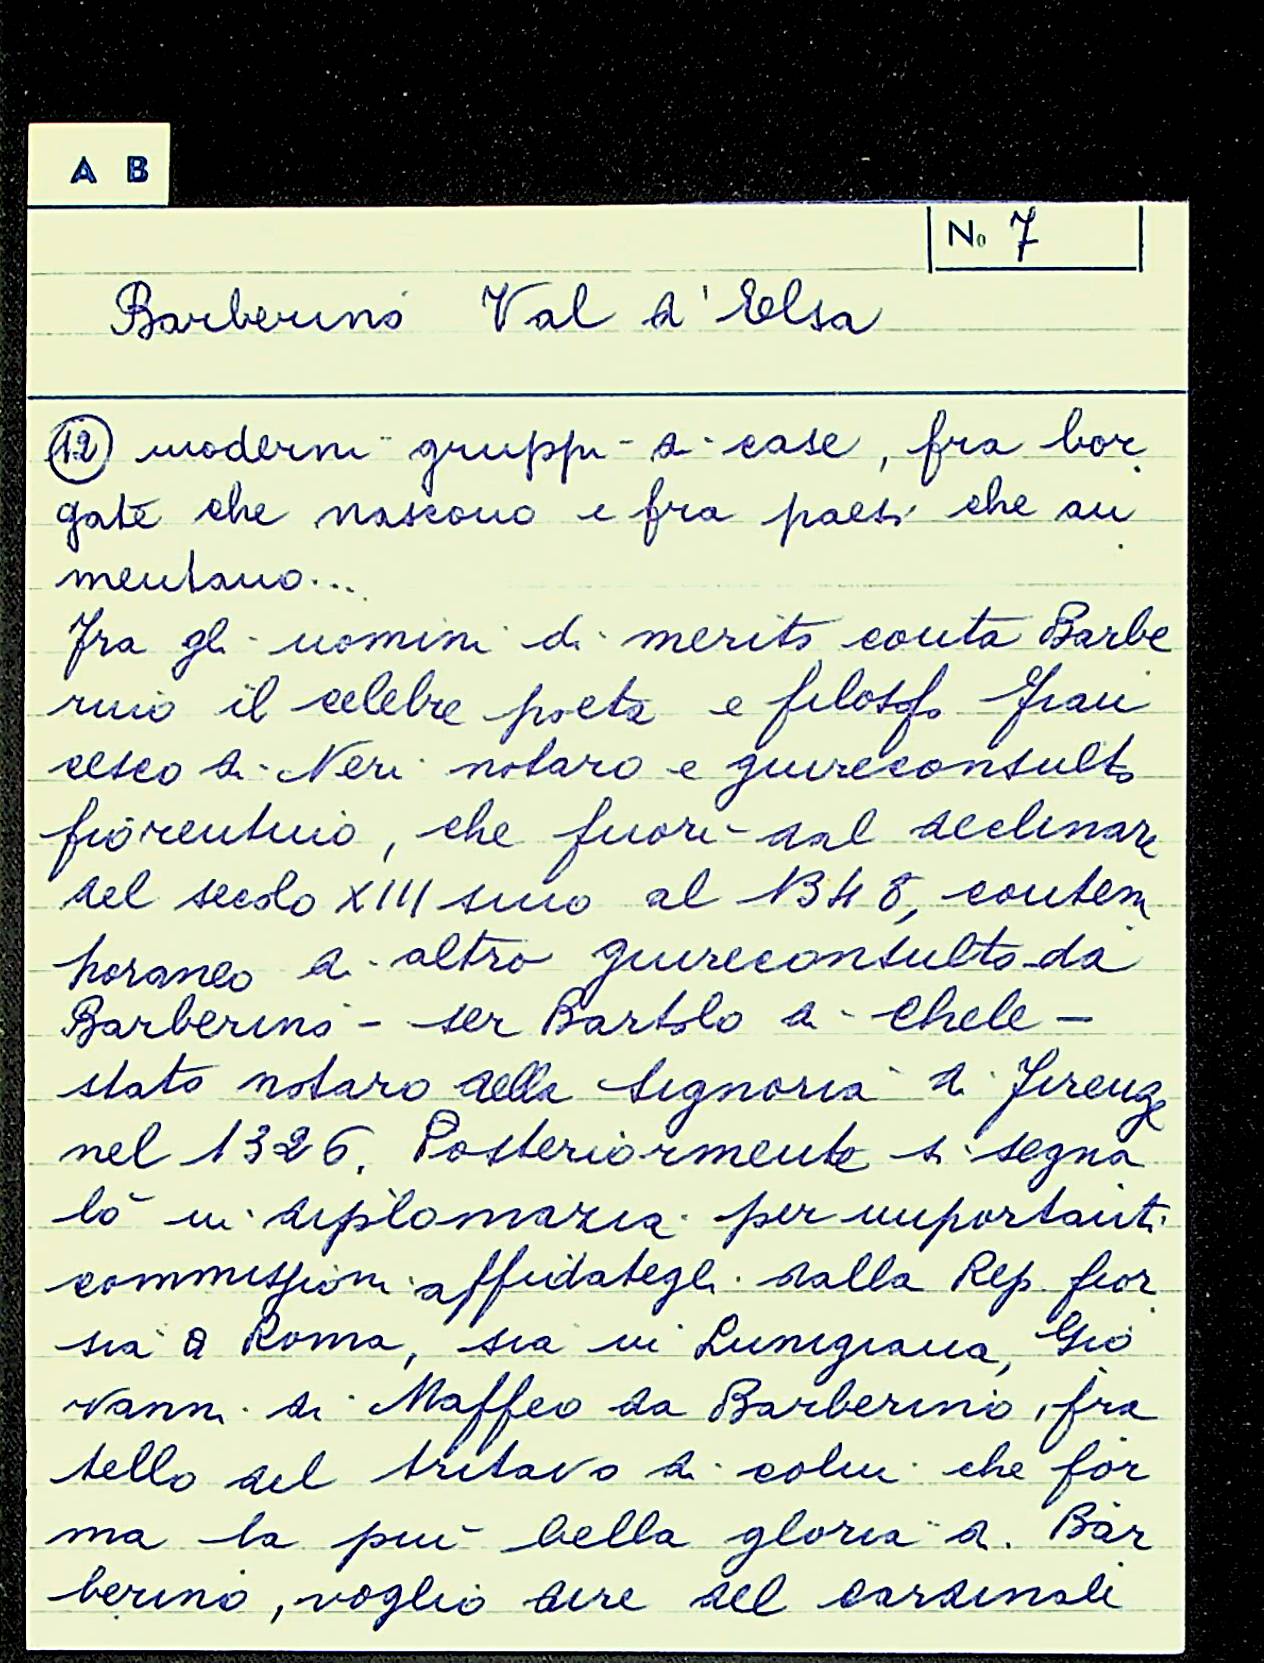 A B
No 7
Barberino Val d'Elsa
12 moderni gruppi di case, fra bor
gate che nascono e fra paesi che au
mentano...
Fra gli uomini di merito conta Barbe
rino il celebre poeta e filosofo Fran
cesco di Neri notaro e giureconsulto
fiorentino, che fuori dal declinare
del secolo XIII sino al 1348, contem
poraneo di altro giureconsulto da
Barberino - ser Bartolo di Chele -
stato notaro della Signoria di Firenze
nel 1326. Posteriormente si segna
lò in diplomazia per importanti
commissioni affidategli dalla Rep fior
sia a Roma, sia in Lunigiana, Gio
vanni di Maffeo da Barberino, fra
tello del tritavo di colui che for
ma la più bella gloria di Bar
berino, voglio dire del cardinale